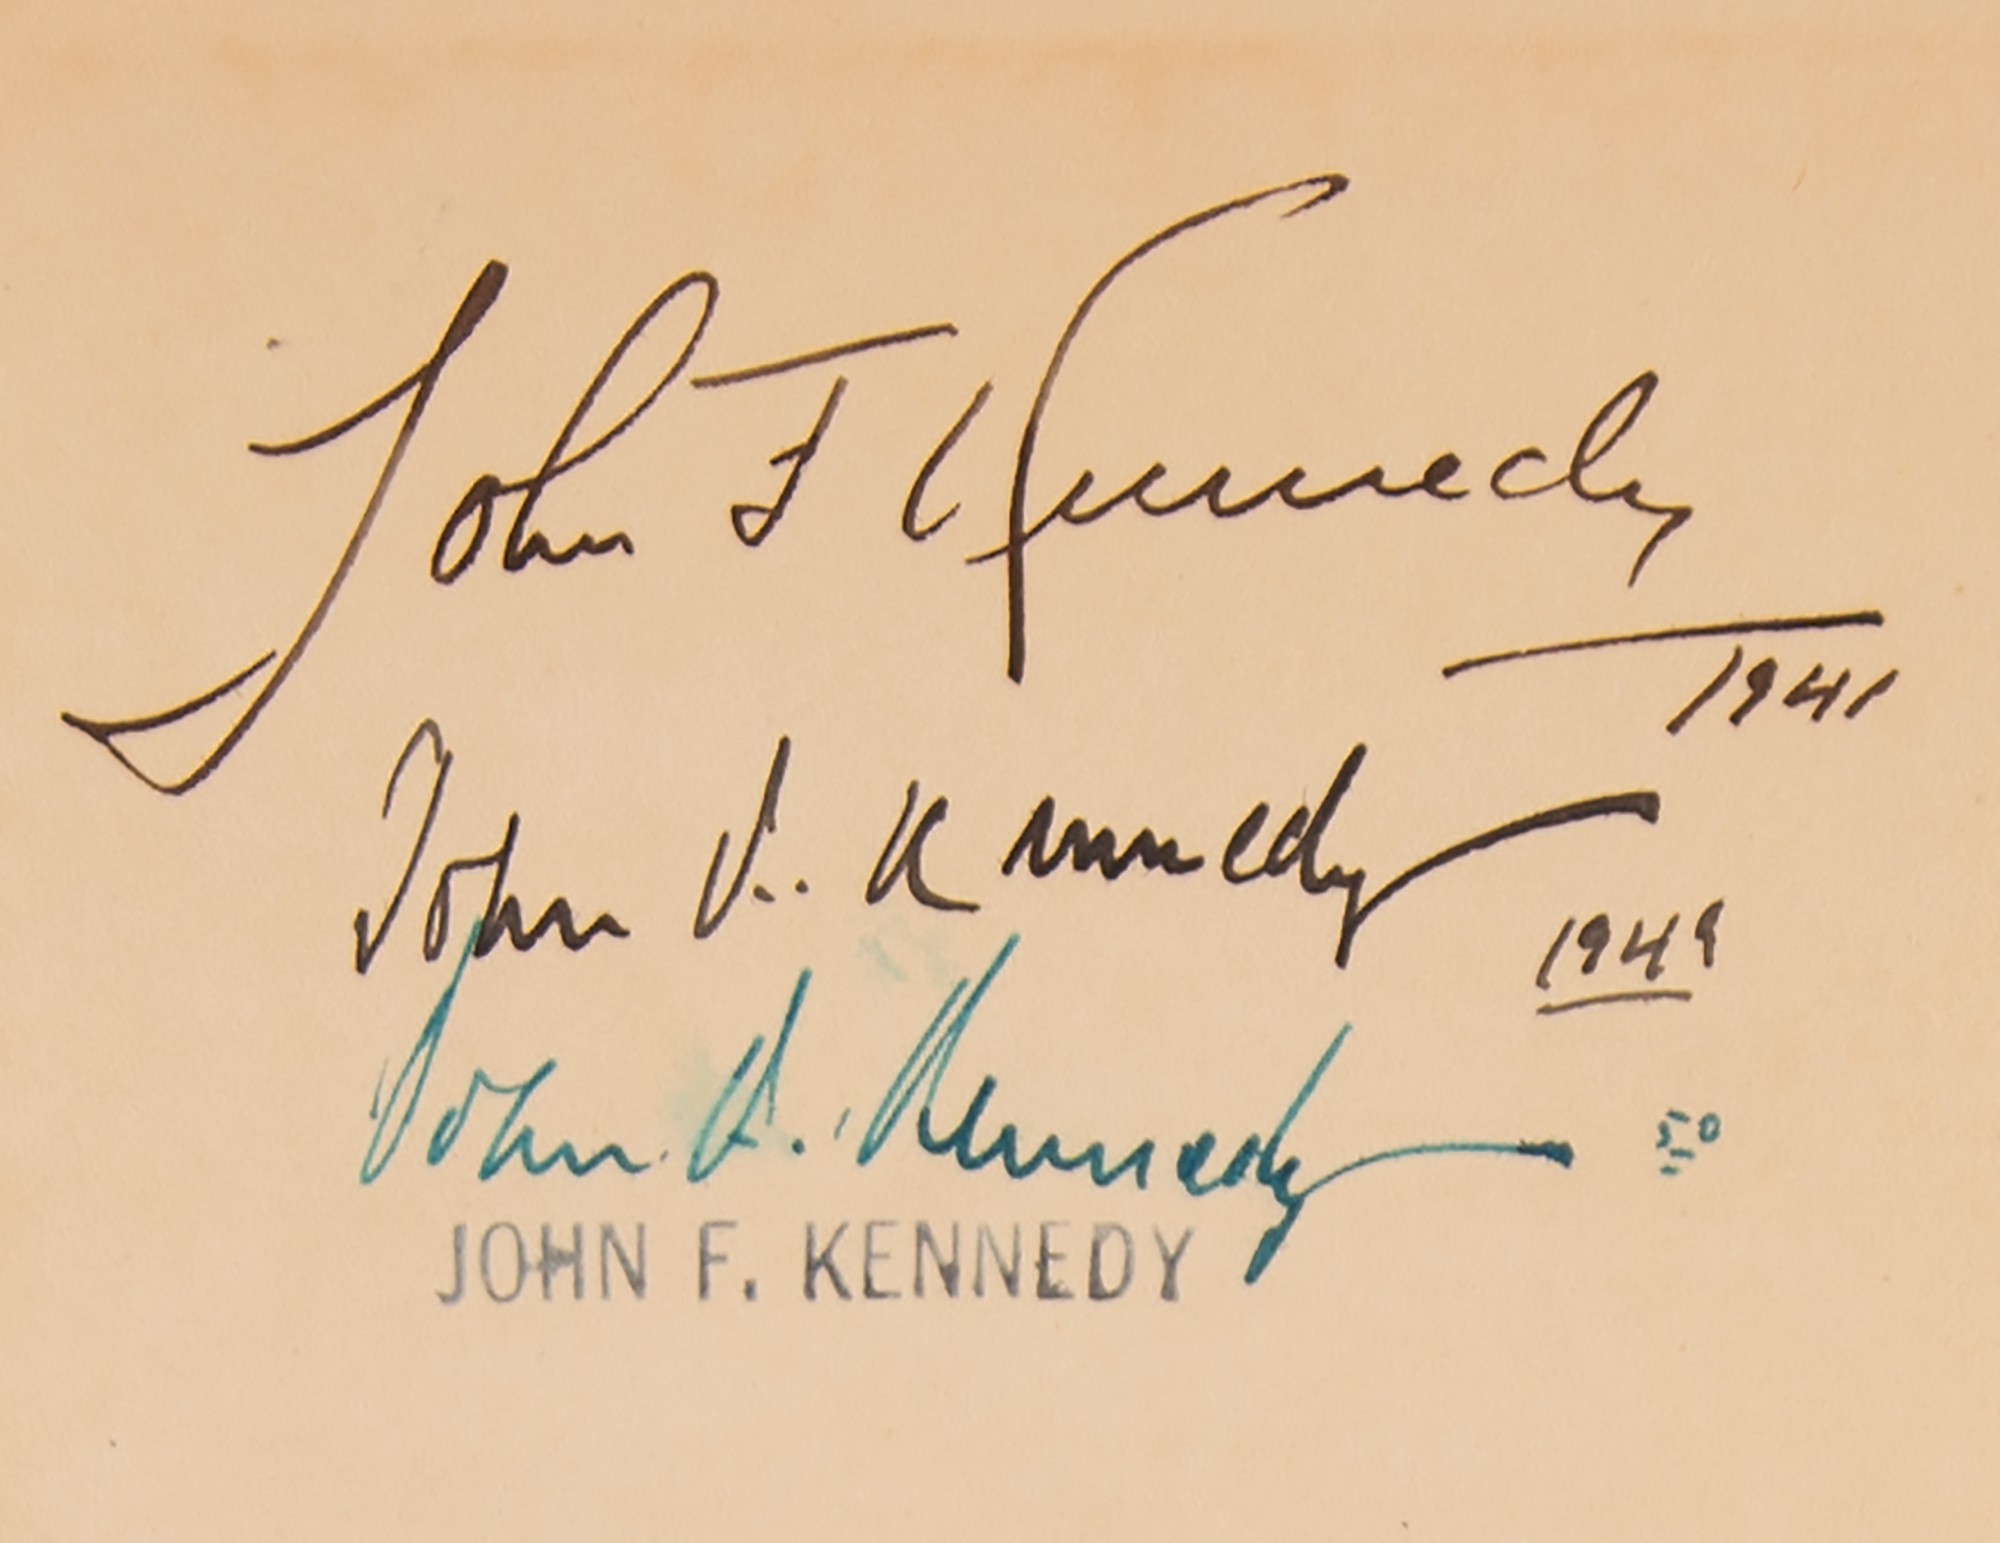 John F Kennedy
1941
John F. Kennedy
1949
John F. Kennedy 50
JOHN F. KENNEDY